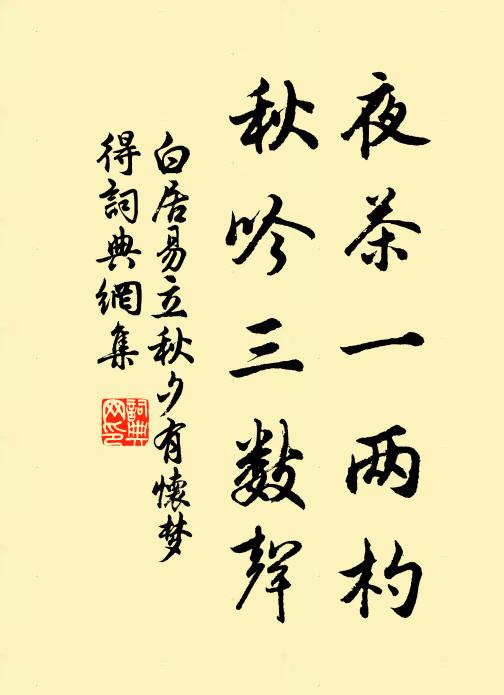 夜茶一两杓
秋吟三数聲
白居易立秋夕有懷梦
得詞典網集
詞典网印